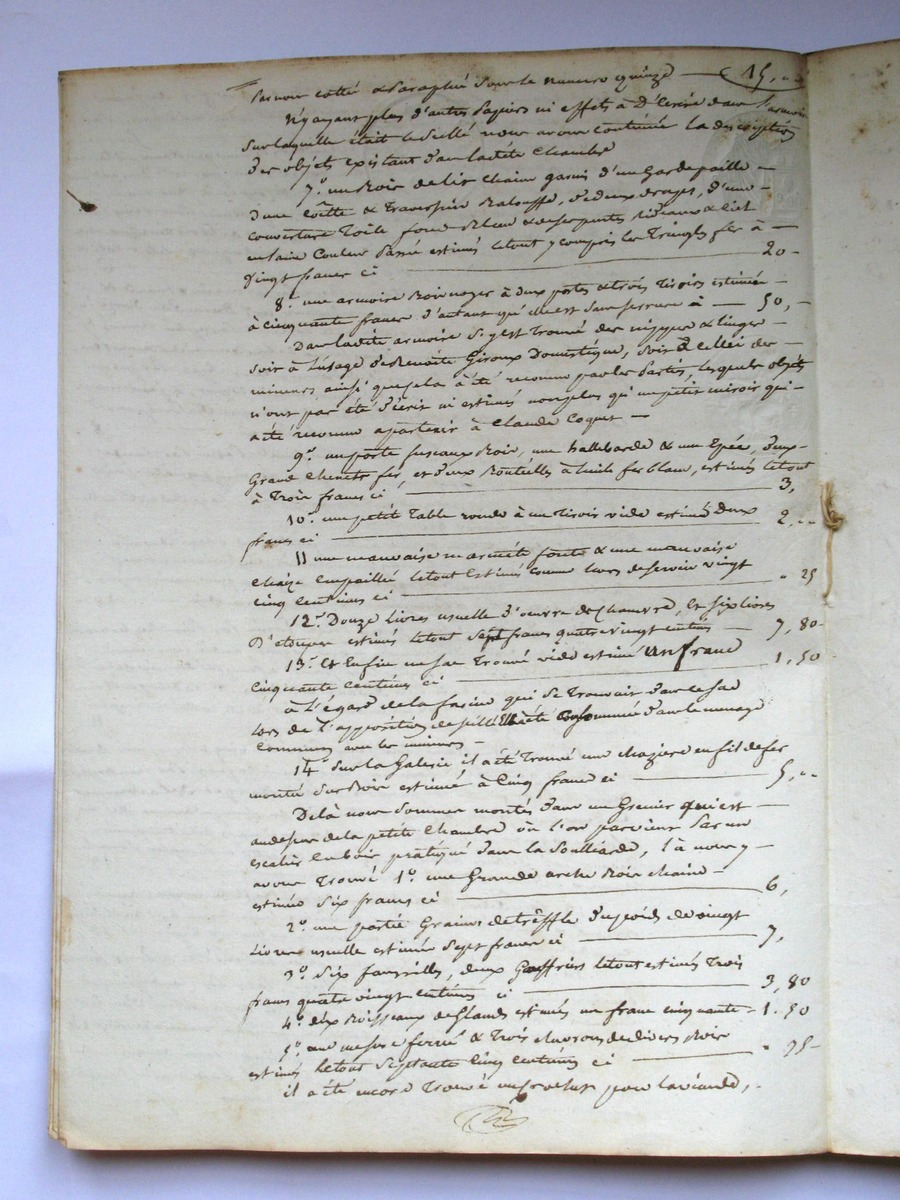 par nous cotté & paraphé sous le numero quinze — 15, ..
n'y ayant plus d'autres papiers ni effets à D'Ecrire dans l'armoire
sur laquelle était le scellé nous avons continué la description
Des objets existant dans ladite chambre
7.º un Bois de lit chaine garni d'un gardepaille —
d'une Coëtte & Traversier Balouffe, de deux draps, d'une —
couverture Toile fond Bleu & de serpentes rideaux & ciel
en laine Couleur passée estimés le tout y compris les Tringles fer à —
Vingt francs ci — 20 -
8.º une armoire Bois noyer à deux portes & trois Tiroirs estimée —
à cinquante francs d'autant qu'elle est sans serrure à — 50, -
Dans ladite armoire il s'y est Trouvé des nippes & linges —
soit à l'usage de Benoite Giroux Domestique, soit à celui des —
mineurs ainsi que cela à été reconnu par les parties, lesquels objets
n'ont pas été décrit ni estimés non plus qu'un petit miroir qui -
a été reconnu apartenir à Claude Coquet —
9.º un porte fuseaux Bois, une hallebarde & une Epée, deux -
Grand Chenets fer, et deux Bouteilles à huile fer blanc, estimés le tout
à Trois francs ci — 3,
10.º une petite Table ronde à un Tiroir vide estimée Deux
francs ci — 2 ..
11 une mauvaise marmite fonte & une mauvaise
chaize Empaillé le tout Estimés comme hors de service vingt
cinq centimes ci — " 25
12.º Douze livres usuelle d'oeuvre de Chanvre, et six livres
D'etoupes estimés le tout sept francs quatre vingt centimes — 7, 80 -
13.º Et Enfin un sac Trouvé vide estimé un franc
Cinquante centimes ci — 1, 50
à l'égard de la farine qui se Trouvait dans le sac
lors de l'apposition de scellé Elle à été Consommée dans le menage
commun avec les mineurs —
14º Sur la Galerie il a été Trouvé une Mazière en fil de fer
monté sur Bois estimée à Cinq francs ci — 5, ..
Delà nous sommes montés dans un Grenier qui est —
audessus de la petite Chambre où l'on parvient par un
escalier en bois pratiqué dans la Souillarde, là nous y —
avons Trouvé 1.º une Grande arche Bois chaine —
estimée six francs ci — 6,
2.º une partie Graines de trêffle du poids de vingt
livres usuelle estimée sept francs ci — 7,
3.º six faucilles, deux le tout estimés Trois
francs quatre vingt centimes ci — 3, 80
4.º dix Boisseaux de Glands estimés un franc cinquante - 1. 50
5.º une mesure ferrée & Trois de divers Bois
estimés le tout septante Cinq centimes ci — " 75 -
il a été encore Trouvé un pour la viande, -